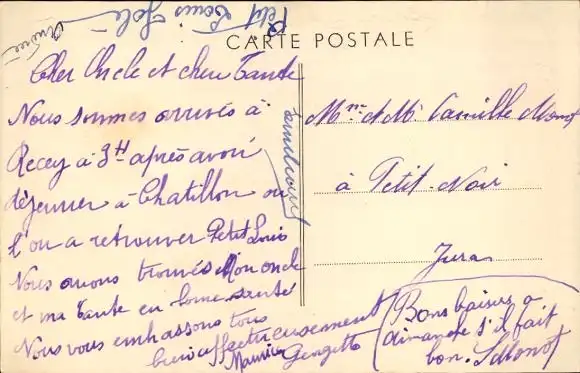 Petit Louis Jolé
André
CARTE POSTALE
Cher Oncle et chère Tante
Nous sommes arrivés à
Recey à 3H après avoir
déjeuner à Chatillon ou
l'on a retrouver Petit Louis
Nous avons trouvés Mon oncle
et ma Tante en bonne santé
Nous vous embrassons tous
bien affectueusement
Maurice Georgette
Mme et Mr Camille Monot
à Petit-Noir
Jura
Bons baisers a
dimanche s'il fait
bon. S Monot